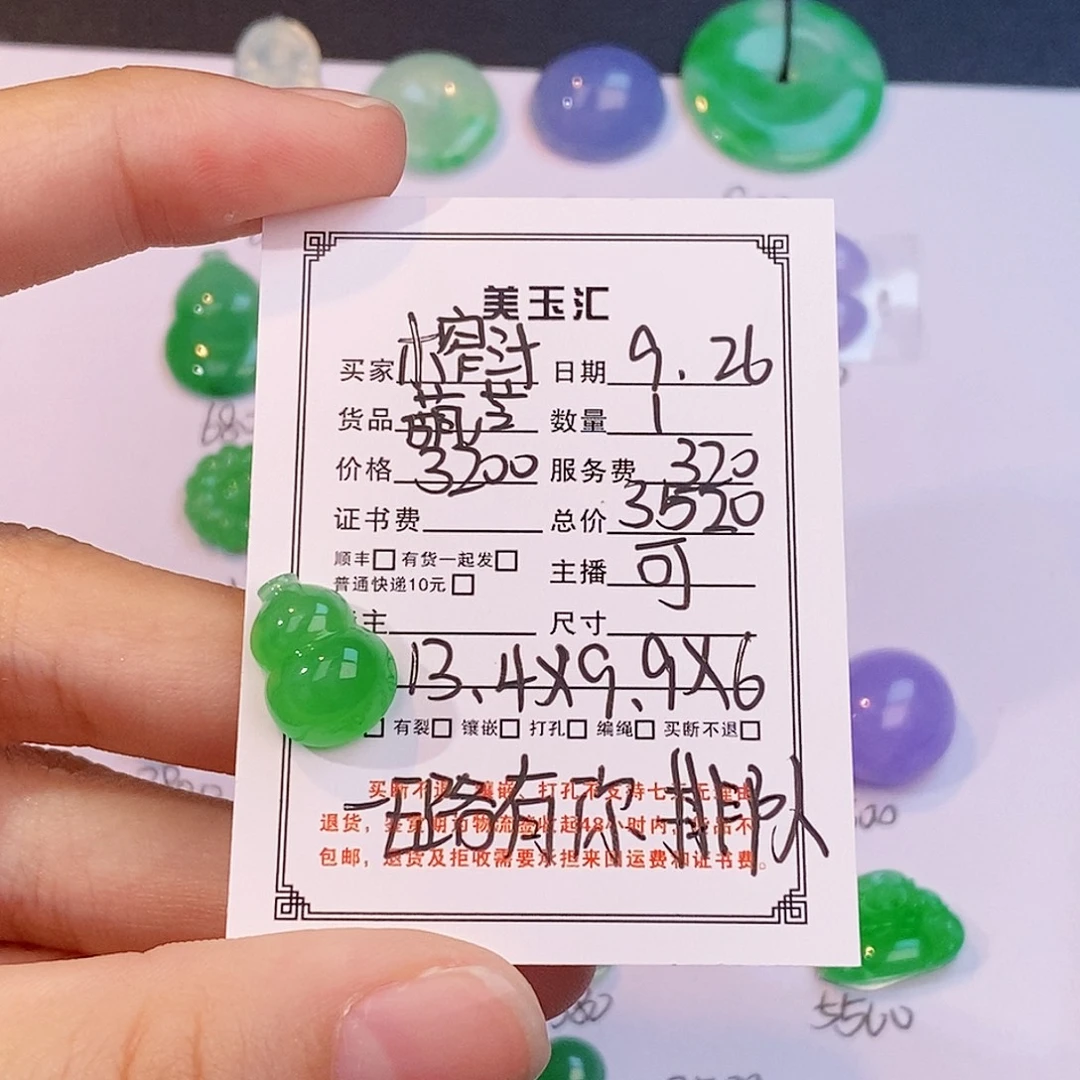 美玉汇
买家 小榨汁 日期 9.26
货品 葫芦 数量 1
价格 3200 服务费 320
证书费 总价 3520
顺丰□ 有货一起发□
普通快递10元 □
主播 可
主 尺寸
13.4X9.9X6
□ 有裂□ 镶嵌□ 打孔□ 编绳□ 买断不退□
一路有你 排队
买断不退 镶嵌、打孔不支持七天无理由
退货，鉴赏期为物流签收起48小时内，货品不
包邮，退货及拒收需要承担来回运费和证书费。
5500